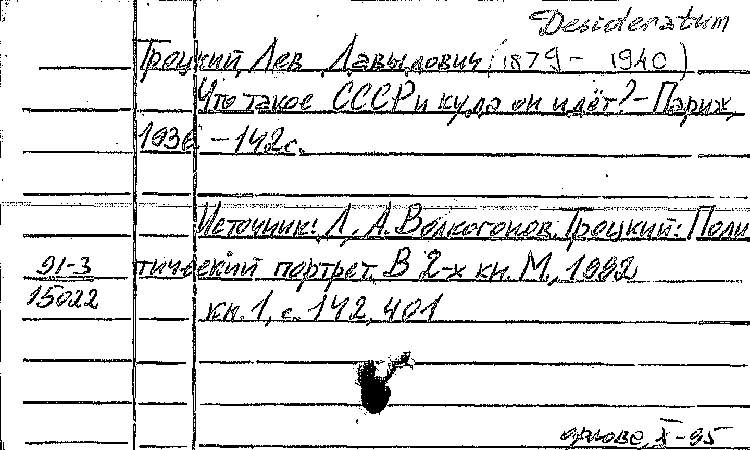 Desideratum
Троцкий, Лев Давыдович (1879 - 1940)
Что такое СССР и куда он идёт? - Париж,
1936 - 142 с.
Источник: Д. А. Волкогонов. Троцкий: Поли
91-3 тический портрет. В 2-х кн. М., 1992
15022 кн. 1, с. 142, 401
X-95